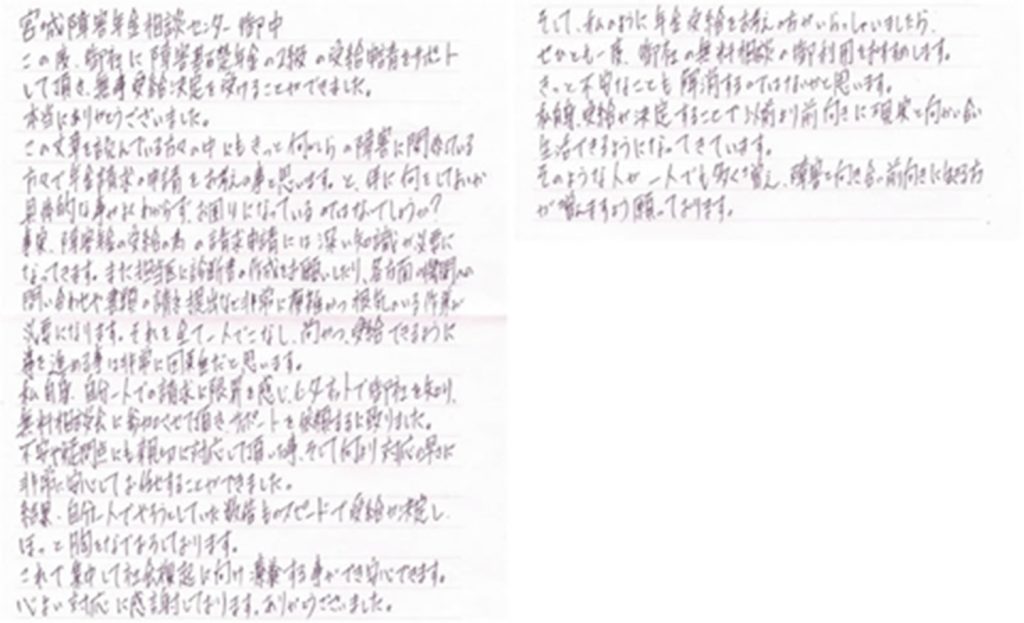 宮城障害年金相談センター御中
この度、御社に障害基礎年金の2級の受給申請をサポート
して頂き、無事受給決定を受けることができました。
本当にありがとうございました。
この文章を読んでいる方々の中にもきっと何かしらの障害に関わっている
方々で年金請求の申請をお考えの事と思います。と、同時に何をして良いか
具体的な事がよくわからず、お困りになっているのではないでしょうか?
事実、障害年金の受給の為の請求申請には深い知識が必要に
なってきます。また担当医に診断書の作成をお願いしたり、各方面の機関への
問い合わせや書類の請求・提出など非常に複雑かつ根気のいる作業が
必要になります。それを全て一人でこなし、尚かつ、受給できるように
事を進める事は非常に困難だと思います。
私自身、自分一人での請求に限界を感じ、インターネットで御社を知り、
無料相談会に参加させて頂き、サポートを依頼するに至りました。
不安や疑問点にも親切に対応して頂いた事、そして何より対応の早さに
非常に安心してお任せすることができました。
結果、自分一人でやろうとしていた数倍ものスピードで受給が決定し、
ほっと胸をなでおろしております。
これで集中して社会復帰に向け療養する事ができ安心できます。
心よい対応に感謝しております。ありがとうございました。
そして、私のように年金受給をお考えの方がいらっしゃいましたら、
ぜひとも一度、御社の無料相談の御利用をお勧めします。
きっと不安なことも解消するのではないかと思います。
私自身、受給が決定することで以前より前向きに現実と向かい合い
生活できるようになってきています。
そのような人が一人でも多く増え、障害と向き合い前向きになる方
が増えますよう願っております。